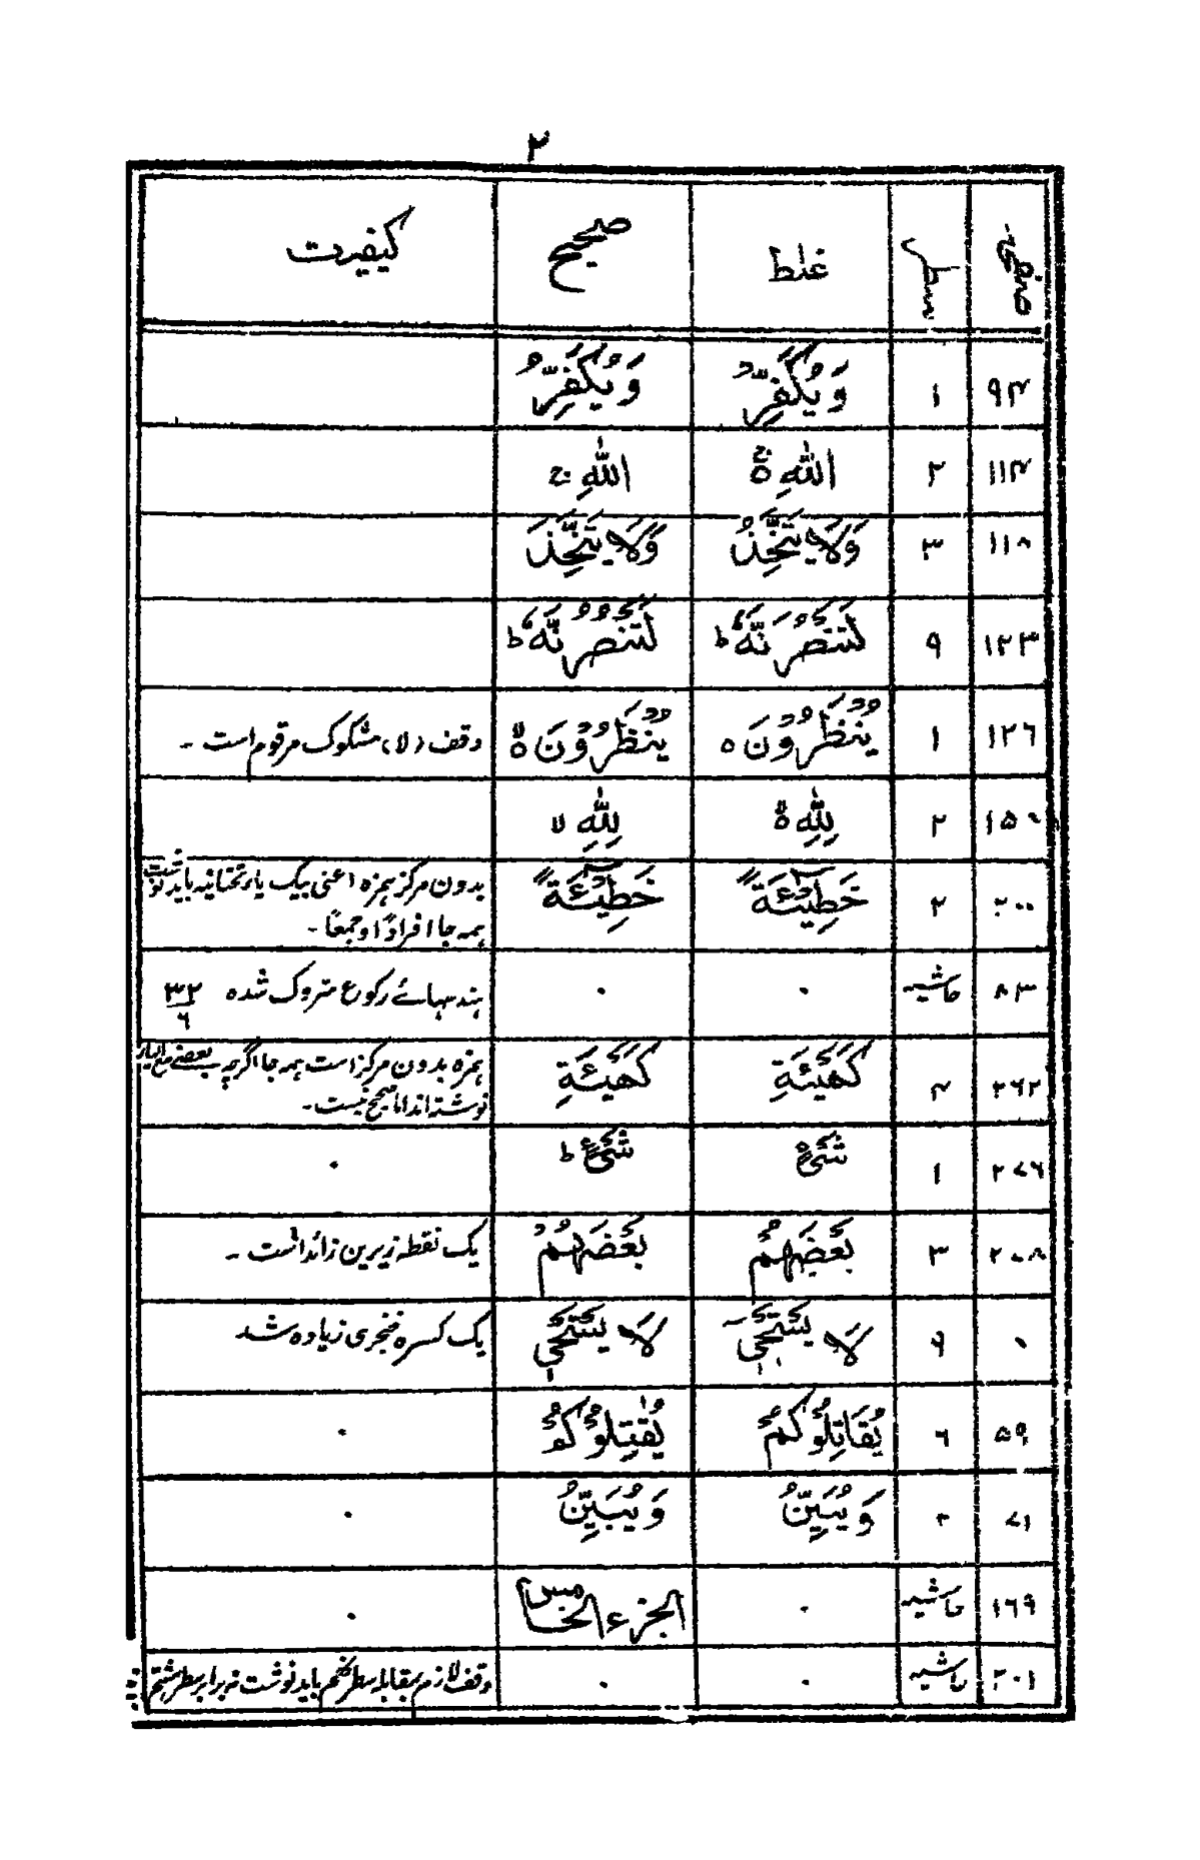 ۲
صفحہ سطر غلط صحیح کیفیت
۹۴ ۱ وَيُكَفِّرُ وَيُكَفِّرُ
۱۱۴ ۲ اللّٰهِ ۃ ج اللّٰهِ ج
۱۱۸ ۳ وَلَا يَتَّخِذُ وَلَا يَتَّخِذَ
۱۲۳ ۹ لَتَنْصُرُنَّهٗ ط لَتَنْصُرُنَّهٗ ط
۱۲۶ ۱ يُنْظَرُوْنَ ہ يُنْظَرُوْنَ ۃ لا وقف (لا) مشکوک مرقوم است ۔
۱۵۰ ۲ لِلّٰهِ ۃ لا لِلّٰهِ لا
۲۰۰ ۲ خَطِيْئَةً خَطِيْٓئَةً بدون مرکز ہمزہ اعنی بیک یاء تحتانیہ باید نوشت
ہمہ جا افرادًا وجمعًا ۔
۸۳ حاشیہ ۰ ۰ ہندسہائے رکوع متروک شدہ ۳۲/۶
۲۶۲ ۴ كَهَيْئَةِ كَهَيْئَةِ ہمزہ بدون مرکز است ہمہ جا اگرچہ بعضے مع الیاء
نوشتہ اند اما صحیح نیست ۔
۲۷۶ ۱ شَیْءٍ ۃ شَیْءٍ ط ۰
۲۰۸ ۳ بَعْضَهُمْ بَعْضَهُمْ یک نقطہ زیرین زائد است ۔
۰ ۶ لَا يَسْتَحْيٖ لَا يَسْتَحْيٖ یک کسرہ خنجری زیادہ شد
۵۹ ۶ يُقَاتِلُوْكُمْ يُقٰتِلُوْكُمْ ۰
۷۱ ۲ وَيُبَيِّنُ وَيُبَيِّنُ ۰
۱۶۹ حاشیہ ۰ الجزء الخامس ۰
۲۰۱ حاشیہ ۰ ۰ وقف لازم بمقابلہ سطر نہم باید نوشت نہ برابر سطر ہشتم